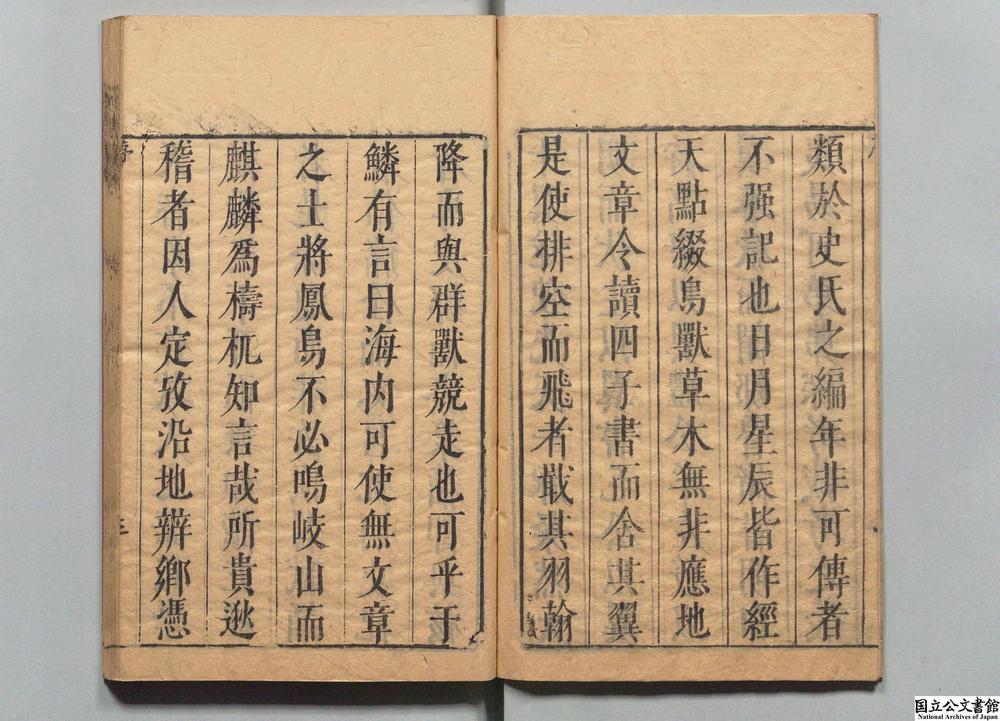 類於史氏之編年非可傳者
不强記也日月星辰皆作經
天點綴鳥獸草木無非應地
文章令讀四子書而舍其翼
是使排空而飛者戢其羽翰
降而與群獸競走也可乎于
鱗有言曰海内可使無文章
之士將鳳鳥不必鳴岐山而
麒麟爲檮杌知言哉所貴逖
稽者因人定攷沿地辨鄉憑
序
三
国立公文書館
National Archives of Japan